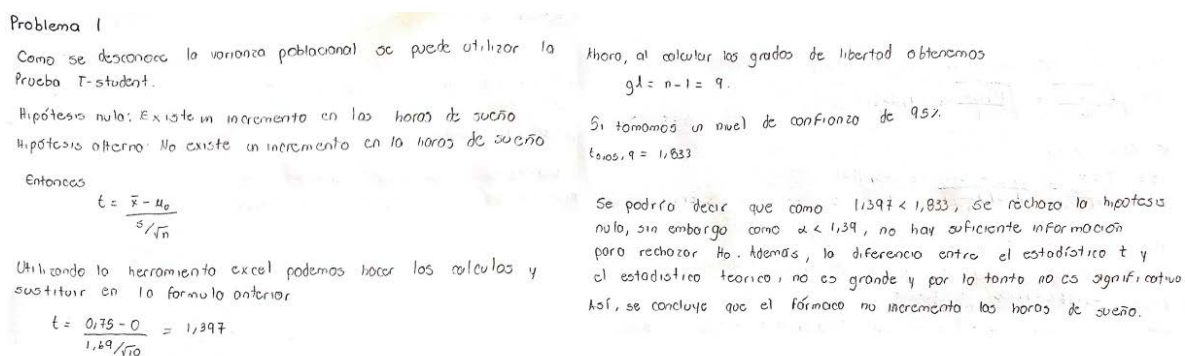 Problema 1
Como se desconoce la varianza poblacional se puede utilizar la
Prueba T-student.
Hipótesis nula: Existe un incremento en las horas de sueño
Hipótesis alterna: No existe un incremento en la horas de sueño
Entonces
t = x̄ - μ₀ / s/√n
Utilizando la herramienta excel podemos hacer los calculos y
sustituir en la formula anterior
t = 0,75 - 0 / 1,69/√10 = 1,397
Ahora, al calcular los grados de libertad obtenemos
gl = n - 1 = 9.
Si tomamos un nivel de confianza de 95%
t₀,₀₅, 9 = 1,833
Se podría decir que como 1,397 < 1,833, se rechaza la hipotesis
nula, sin embargo como α < 1,39, no hay suficiente información
para rechazar H₀. Además, la diferencia entre el estadístico t y
el estadistico teorico, no es grande y por lo tanto no es significativo
Así, se concluye que el fármaco no incrementa las horas de sueño.